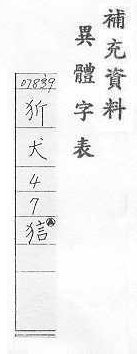 補充資料
異體字表
07839
㹞
犬
4
7
狺